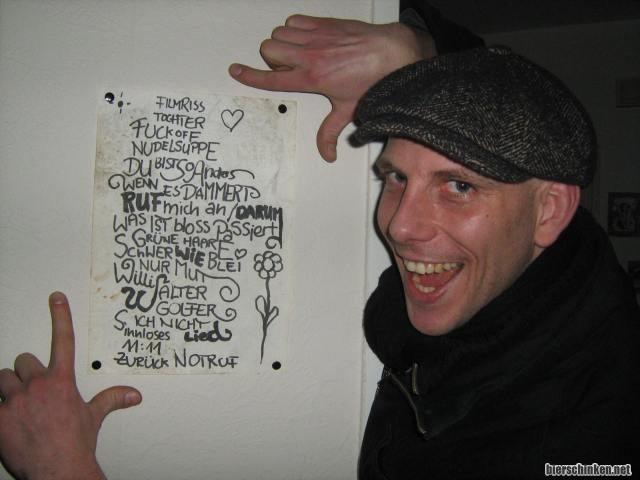 FILMRISS
TOCHTER
FUCK OFF
NUDELSUPPE
DU BIST SO Anders
WENN ES DÄMMERT
RUF mich an / DARUM
WAS IST bloss PASSiERT
GRÜNE HAARE
SCHWER WIE BLEI
NUR MUT
Willi
WALTER
GOLFER
SICH NICHT
Sinnloses Lied
11:11
ZURÜCK NOTRUF
bierschinken.net